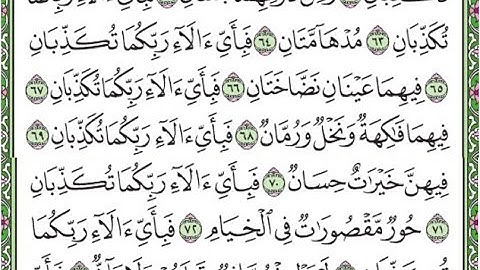 تُكَذِّبَانِ ٦٣ مُدْهَآمَّتَانِ ٦٤ فَبِأَيِّ ءَالَآءِ رَبِّكُمَا تُكَذِّبَانِ
٦٥ فِيهِمَا عَيْنَانِ نَضَّاخَتَانِ ٦٦ فَبِأَيِّ ءَالَآءِ رَبِّكُمَا تُكَذِّبَانِ ٦٧
فِيهِمَا فَٰكِهَةٌ وَنَخْلٌ وَرُمَّانٌ ٦٨ فَبِأَيِّ ءَالَآءِ رَبِّكُمَا تُكَذِّبَانِ ٦٩
فِيهِنَّ خَيْرَٰتٌ حِسَانٌ ٧٠ فَبِأَيِّ ءَالَآءِ رَبِّكُمَا تُكَذِّبَانِ
٧١ حُورٌ مَّقْصُورَٰتٌ فِي ٱلْخِيَامِ ٧٢ فَبِأَيِّ ءَالَآءِ رَبِّكُمَا